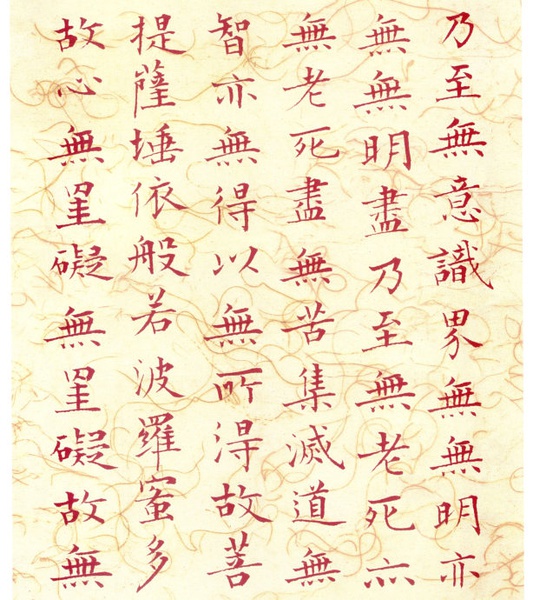 乃至無意識界無無明亦
無無明盡乃至無老死亦
無老死盡無苦集滅道無
智亦無得以無所淂故菩
提薩埵依般若波羅蜜多
故心無罣礙無罣礙故無